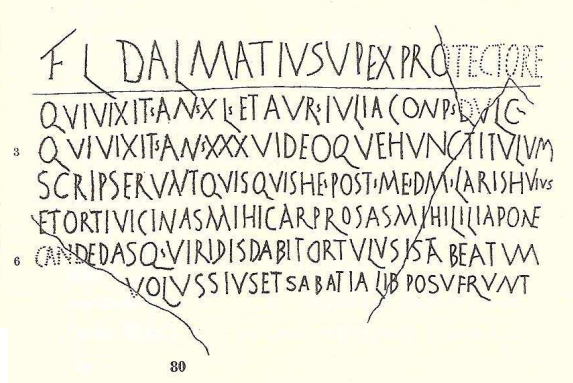 FL DALMATIVS VP EX PROTECTORE
QVI VIXIT AN XL ET AVR IVLIA CONPS DVLC
3 QVI VIXIT AN XXX VI DEO QVE HVNC TITVLVM
SCRIPSERVNT QVISQVIS HE POST ME DM LARIS HVIVS
ET ORTI VICINAS MIHI CARP ROSAS MIHI LILIA PONE
6 CANDEDAS Q VIRIDIS DABIT ORTVLVS ISTA BEATVM
VOLVSSIVS ET SABATIA LIB POSVERVNT
80